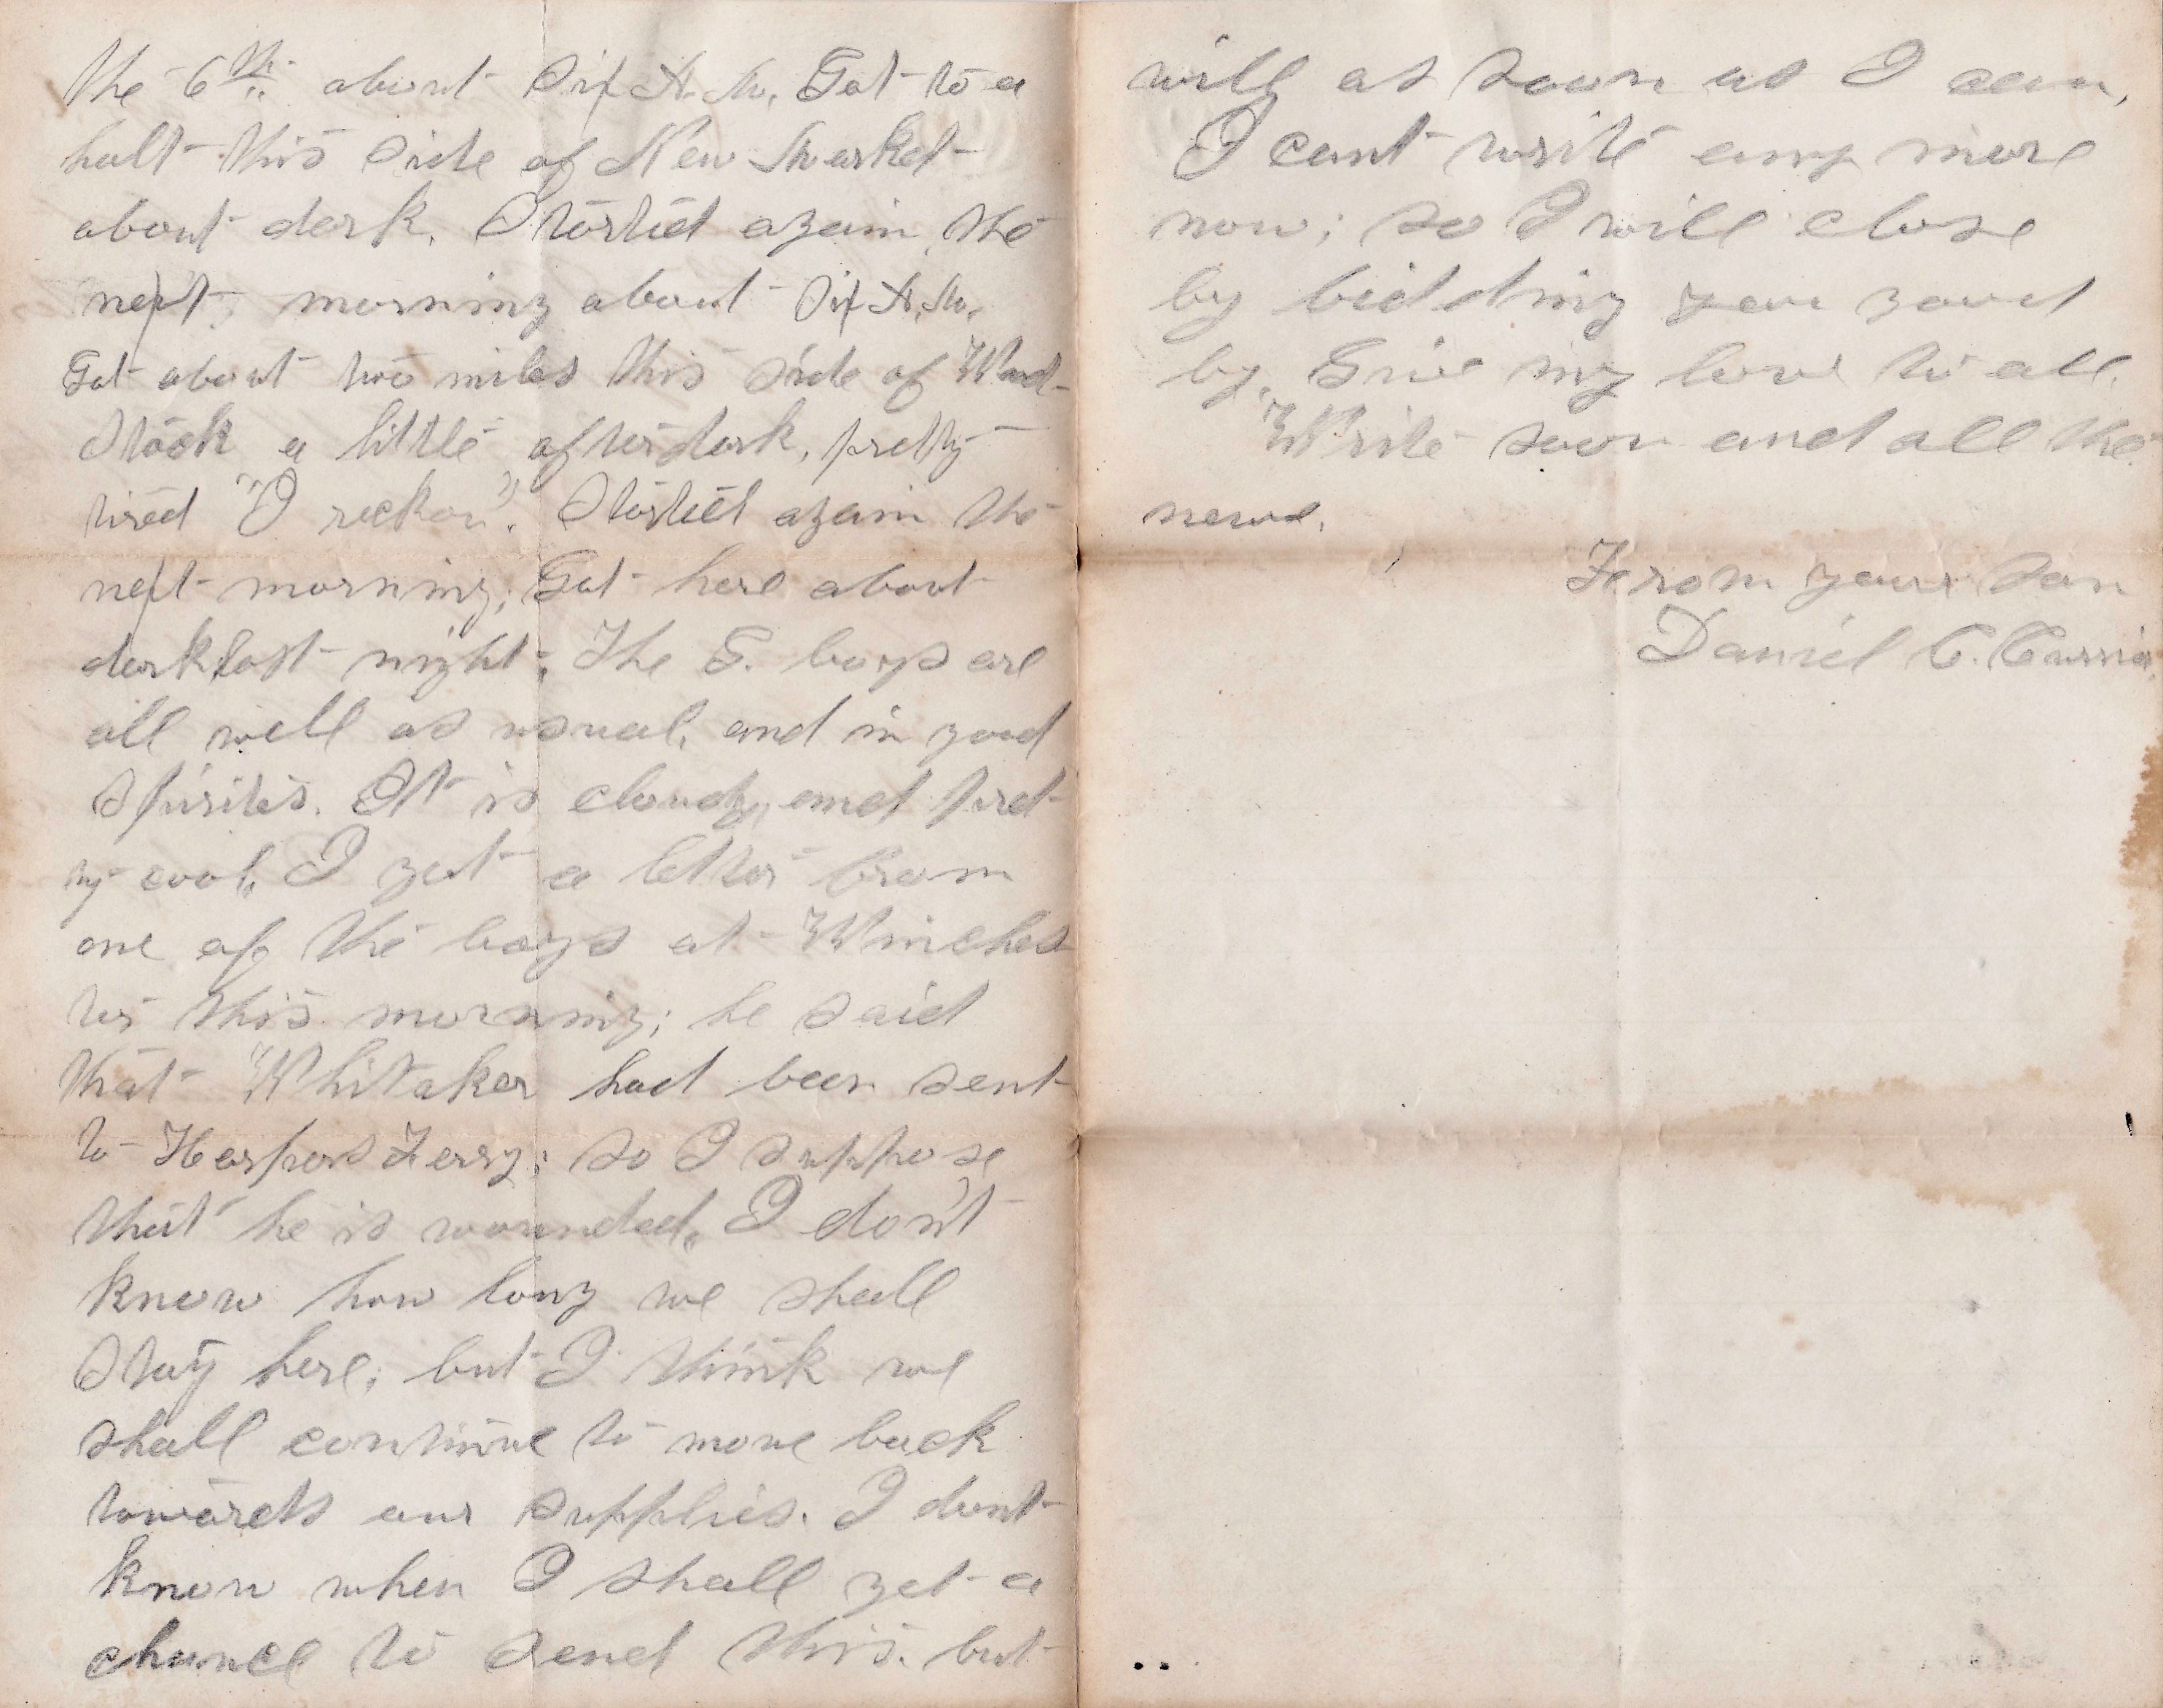 the 6th. about six A.M. Got to a
halt this side of New Market
about dark. Started again the
next morning about six A.M.
Got about two miles this side of Wood-
stock a little after dark, pretty
tired "I reckon". Started again the
next morning; Got here about
dark last night. The G. boys are
all well as usual, and in good
spirites. It is cloudy, and pret-
ty cool. I got a letter from
one of the boys at Winches
ter this morning; he said
that Whitaker had been sent
to Harpers Ferry; so I suppose
that he is wounded. I don't
know how long we shall
stay here; but I think we
shall continue to move back
towards our supplies. I dont
know when I shall get a
chance to send this. but
will as soon as I can,
I cant write any more
now; so I will close
by bidding you good
by. Give my love to all.
Write soon and all the
news.
From your son
Daniel C. Currier